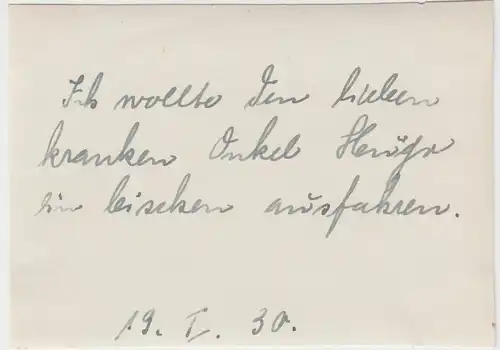 Ich wollte den lieben
kranken Onkel
ein bischen ausfahren.
19. I. 30.